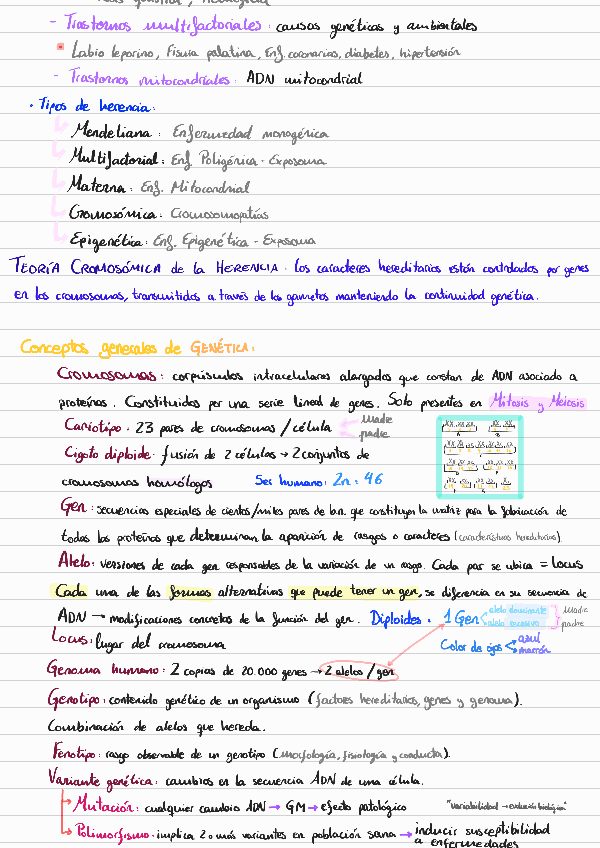 - Trastornos multifactoriales: causas genéticas y ambientales
Labio leporino, Fisura palatina, Enf. coronarias, diabetes, hipertensión
- Trastornos mitocondriales: ADN mitocondrial
• Tipos de herencia:
Mendeliana: Enfermedad monogénica
Multifactorial: Enf. Poligénica - Exposoma
Materna: Enf. Mitocondrial
Cromosómica: Cromosomopatías
Epigenética: Enf. Epigenética - Exposoma
TEORÍA CROMOSÓMICA de la HERENCIA: los caracteres hereditarios están controlados por genes
en los cromosomas, transmitidos a través de los gametos manteniendo la continuidad genética.
Conceptos generales de GENÉTICA:
Cromosomas: corpúsculos intracelulares alargados que constan de ADN asociado a
proteínas. Constituidos por una serie lineal de genes. Solo presentes en Mitosis y Meiosis
Cariotipo: 23 pares de cromosomas / célula
madre
padre
Cigoto diploide: fusión de 2 células → 2 conjuntos de
cromosomas homólogos Ser humano: 2n = 46
Gen: secuencias especiales de cientos/miles pares de b.n. que constituyen la matriz para la fabricación de
todas las proteínas que determinan la aparición de rasgos o caracteres (características hereditarias).
Alelo: versiones de cada gen responsables de la variación de un rasgo. Cada par se ubica = locus
Cada una de las formas alternativas que puede tener un gen, se diferencia en su secuencia de
ADN → modificaciones concretas de la función del gen. Diploides: 1 Gen
alelo dominante
alelo recesivo
madre
padre
Locus: lugar del cromosoma
Color de ojos
azul
marrón
Genoma humano: 2 copias de 20.000 genes → 2 alelos / gen
Genotipo: contenido genético de un organismo (factores hereditarios, genes y genoma).
Combinación de alelos que hereda.
Fenotipo: rasgo observable de un genotipo (morfología, fisiología y conducta).
Variante genética: cambios en la secuencia ADN de una célula.
Mutación: cualquier cambio ADN → GM → efecto patológico "Variabilidad → evolución biológica"
Polimorfismo: implica 2 o más variantes en población sana → inducir susceptibilidad
a enfermedades